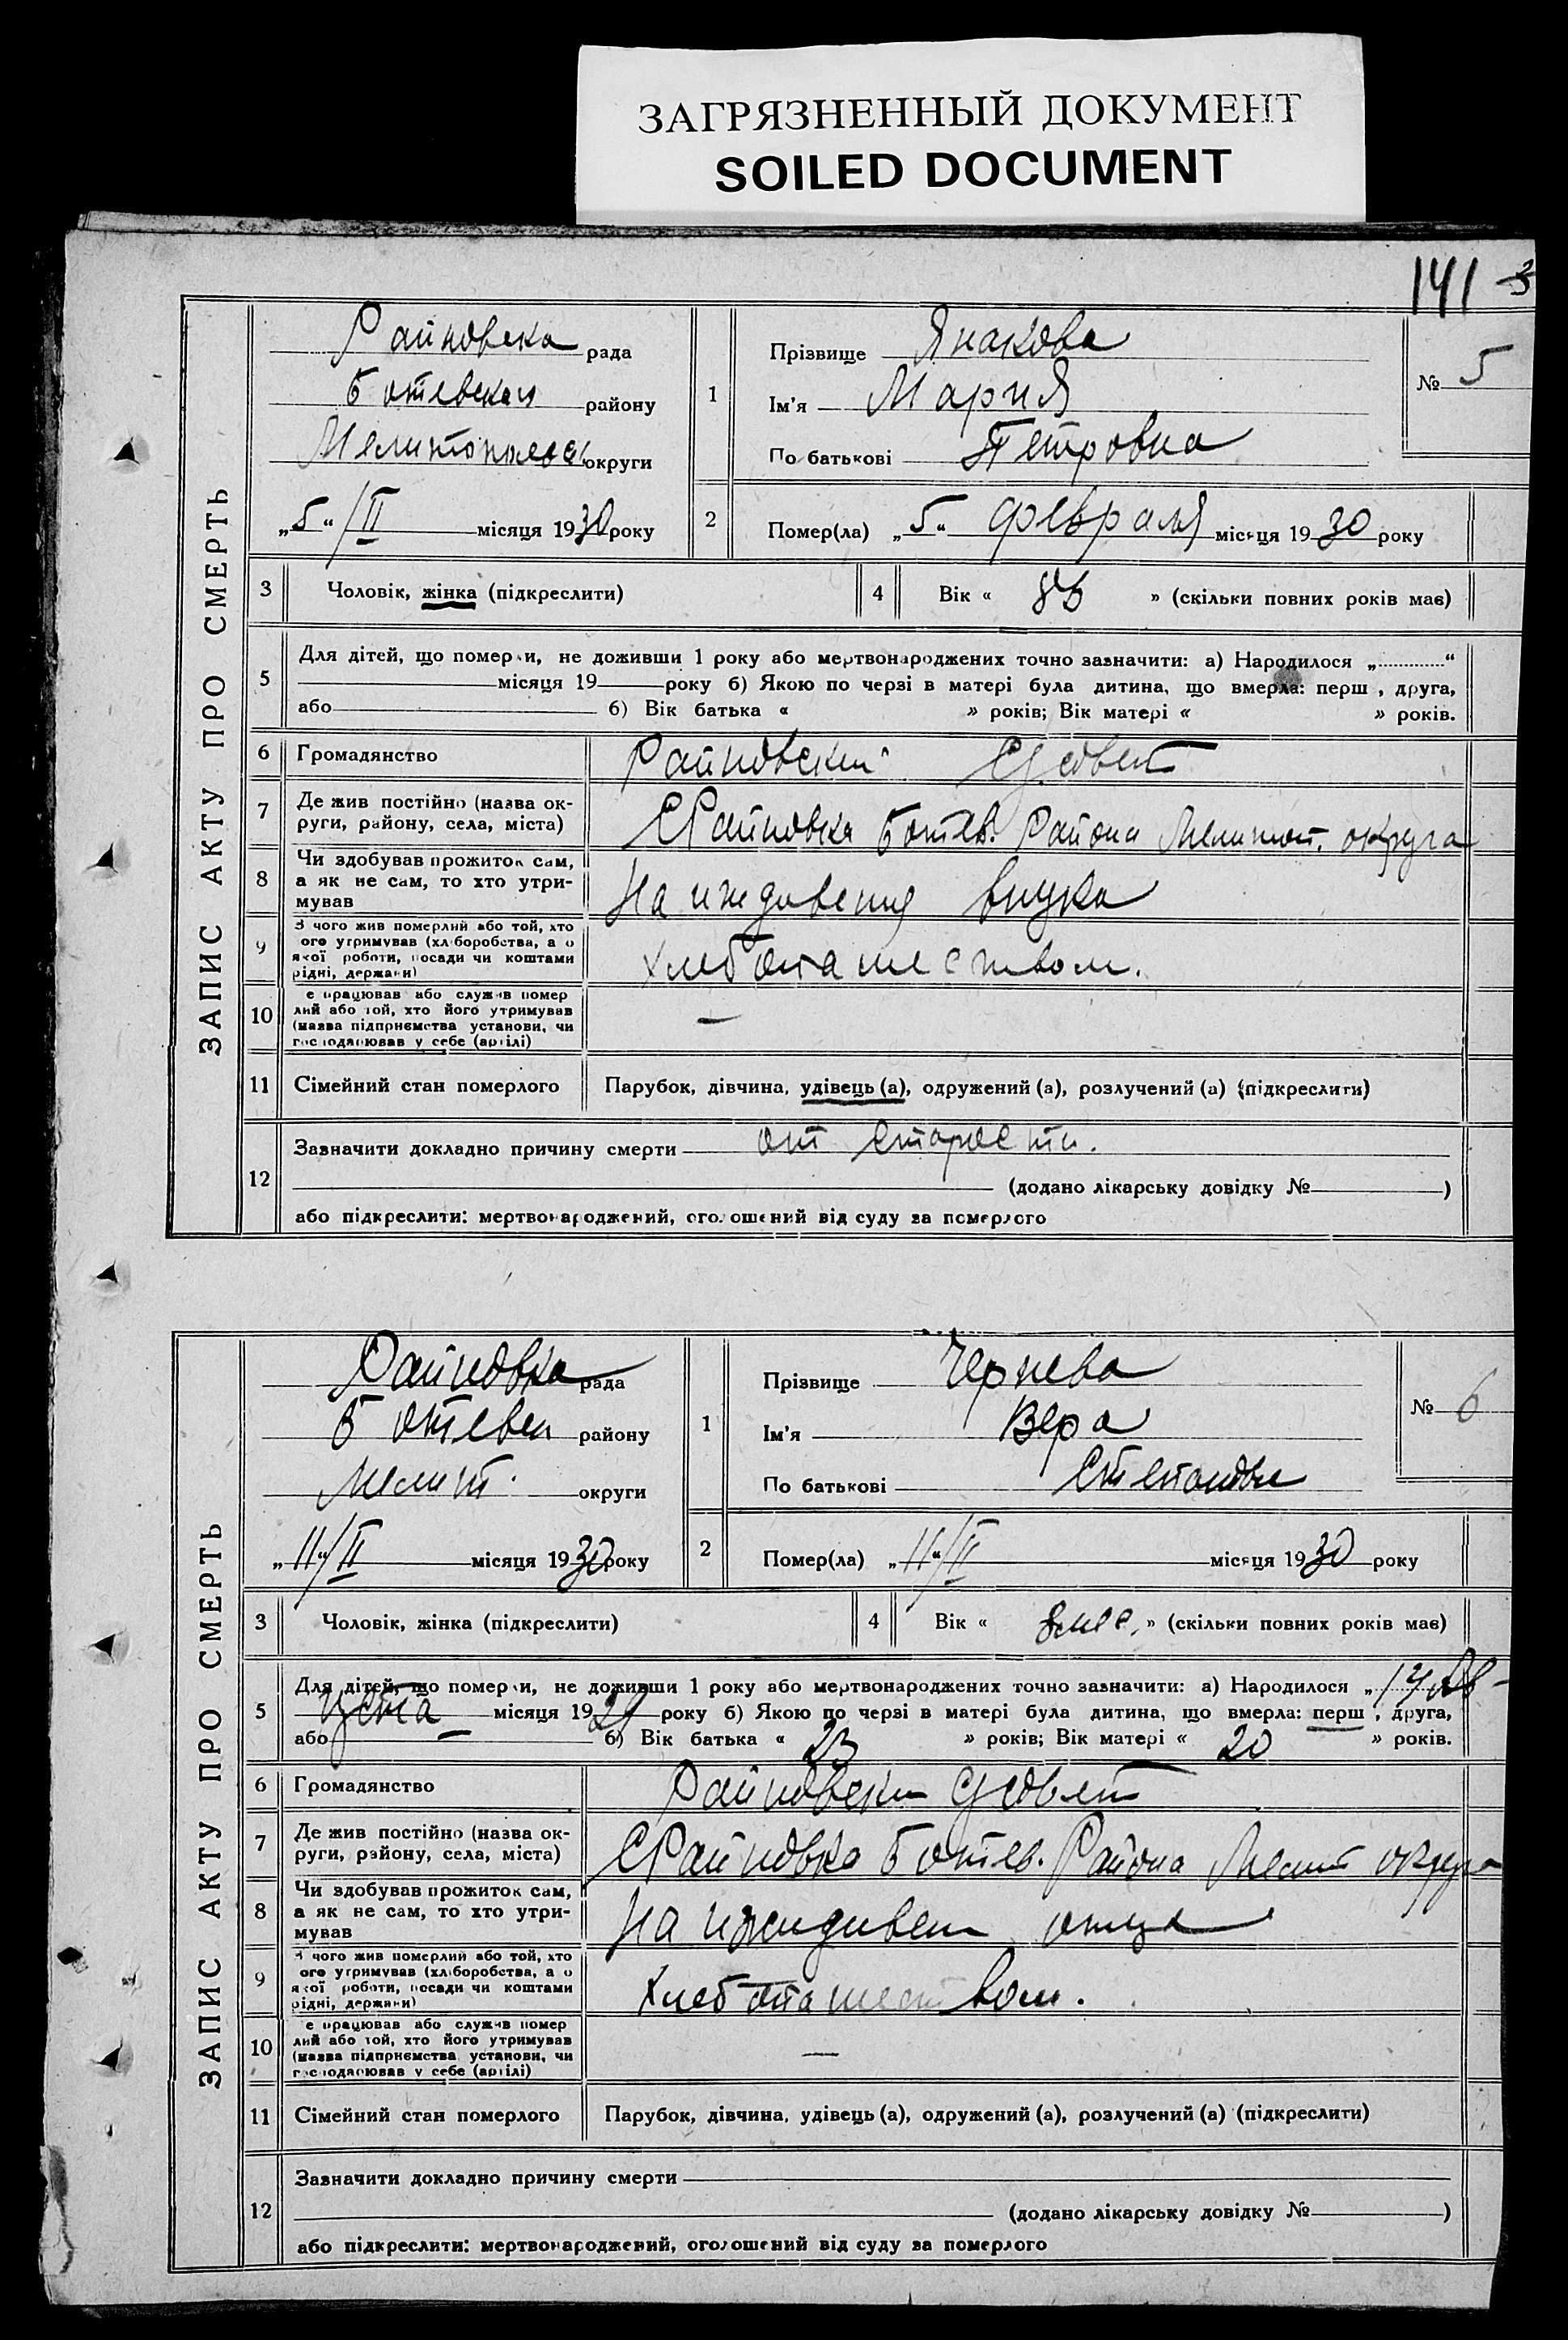 ЗАГРЯЗНЕННЫЙ ДОКУМЕНТ
SOILED DOCUMENT
141
ЗАПИС АКТУ ПРО СМЕРТЬ
Райновска рада
Ботевская району
округи
„5“/II місяця 1930 року
1
Прізвище Янакова
Ім'я Мария
По батькові Петровна
№ 5
2
Помер(ла) „5“ февраля місяця 1930 року
3 Чоловік, жінка (підкреслити)
4 Вік « » (скільки повних років має)
5 Для дітей, що померли, не доживши 1 року або мертвонароджених точно зазначити: а) Народилося „ “
місяця 19 року б) Якою по черзі в матері була дитина, що вмерла: перш , друга,
або б) Вік батька « » років; Вік матері « » років.
6 Громадянство Райновский С/совет
7 Де жив постійно (назва ок-
руги, району, села, міста) С Райновка Ботев. Района Мелитоп. округа
8 Чи здобував прожиток сам,
а як не сам, то хто утри-
мував На иждивения внука
9 З чого жив померлий або той, хто
ого утримував (хліборобства, а о
якої роботи, посади чи коштами
рідні, держави) Хлебопашеством.
10 е працював або служив помер
лий або той, хто його утримував
(назва підприємства установи, чи
господарював у себе (артілі) —
11 Сімейний стан померлого Парубок, дівчина, удівець (а), одружений (а), розлучений (а) (підкреслити)
12 Зазначити докладно причину смерти от старости.
(додано лікарську довідку № )
або підкреслити: мертвонароджений, оголошений від суду за померлого
ЗАПИС АКТУ ПРО СМЕРТЬ
Райновка рада
Ботевск району
Мелит. округи
„11“/II місяця 1930 року
1
Прізвище Чернева
Ім'я Вера
По батькові
№ 6
2
Помер(ла) „11“/II місяця 1930 року
3 Чоловік, жінка (підкреслити)
4 Вік « » (скільки повних років має)
5 Для дітей, що померли, не доживши 1 року або мертвонароджених точно зазначити: а) Народилося „ Ав-
густа місяця 1929 року б) Якою по черзі в матері була дитина, що вмерла: перш , друга,
або б) Вік батька « 23 » років; Вік матері « 20 » років.
6 Громадянство Райновски С/совет
7 Де жив постійно (назва ок-
руги, району, села, міста) С Райновка Ботев. Района Мелит округа
8 Чи здобував прожиток сам,
а як не сам, то хто утри-
мував На иждивен отца
9 З чого жив померлий або той, хто
ого утримував (хліборобства, а о
якої роботи, посади чи коштами
рідні, держави) Хлебопашеством.
10 е працював або служив помер
лий або той, хто його утримував
(назва підприємства установи, чи
господарював у себе (артілі) —
11 Сімейний стан померлого Парубок, дівчина, удівець (а), одружений (а), розлучений (а) (підкреслити)
12 Зазначити докладно причину смерти
(додано лікарську довідку № )
або підкреслити: мертвонароджений, оголошений від суду за померлого